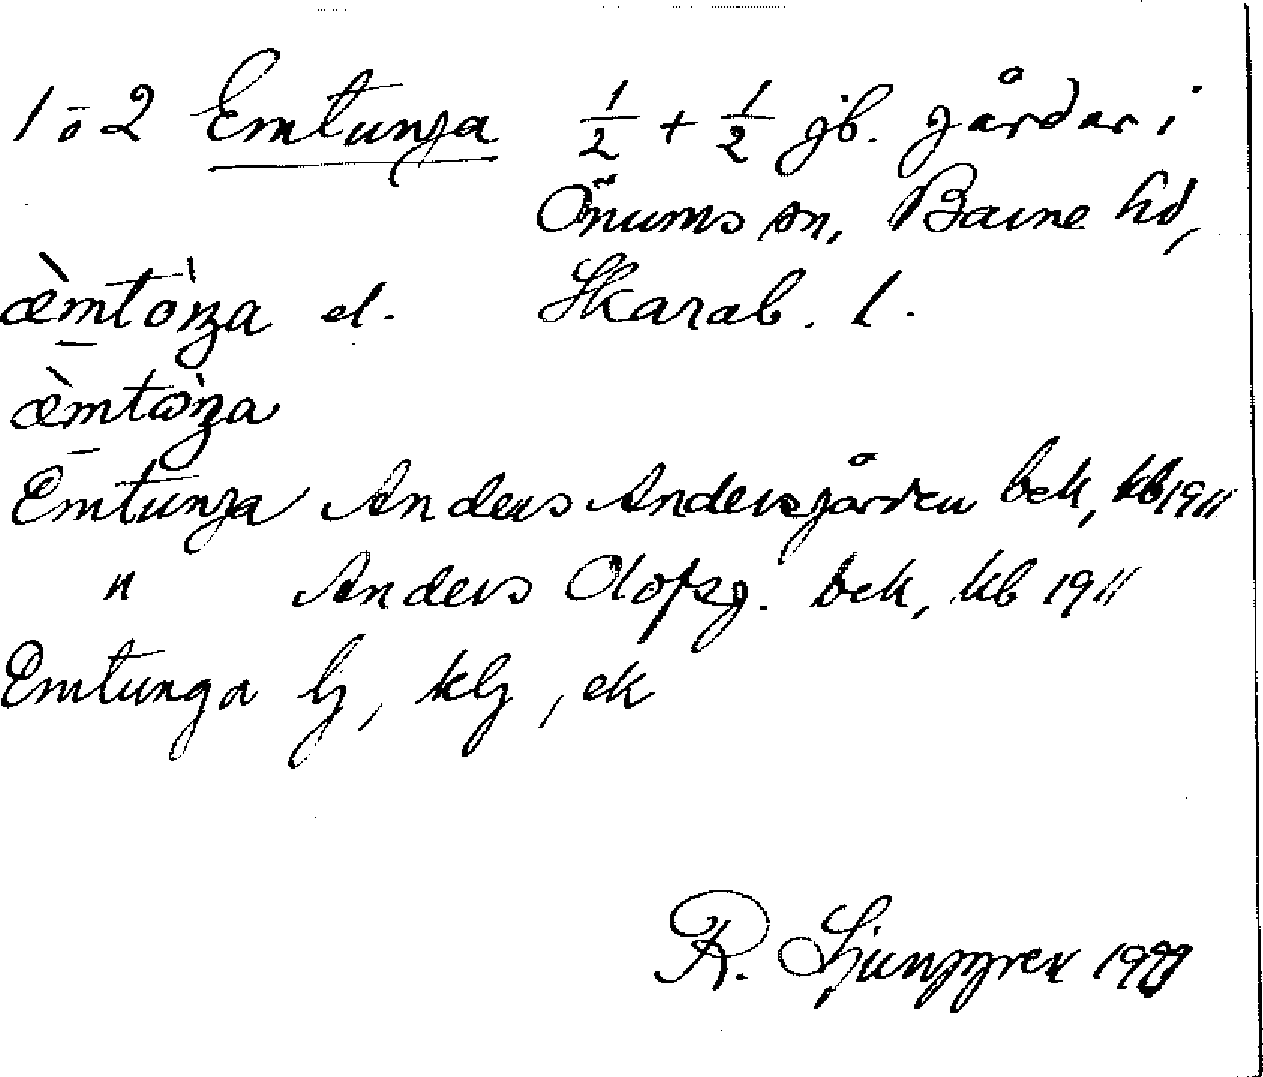 1 o 2 Emtunga 1/2 + 1/2 jb. gårdar i
Önums sn, Barne hd,
æ̀mtòŋa el. Skarab. l.
æ̀mtɷ̀ŋa
Emtunga Anders Andersgården bek, kb 1911
" Anders Olofsg. bek, kb 1911
Emtunga lj, klj, ek
R. Ljunggren